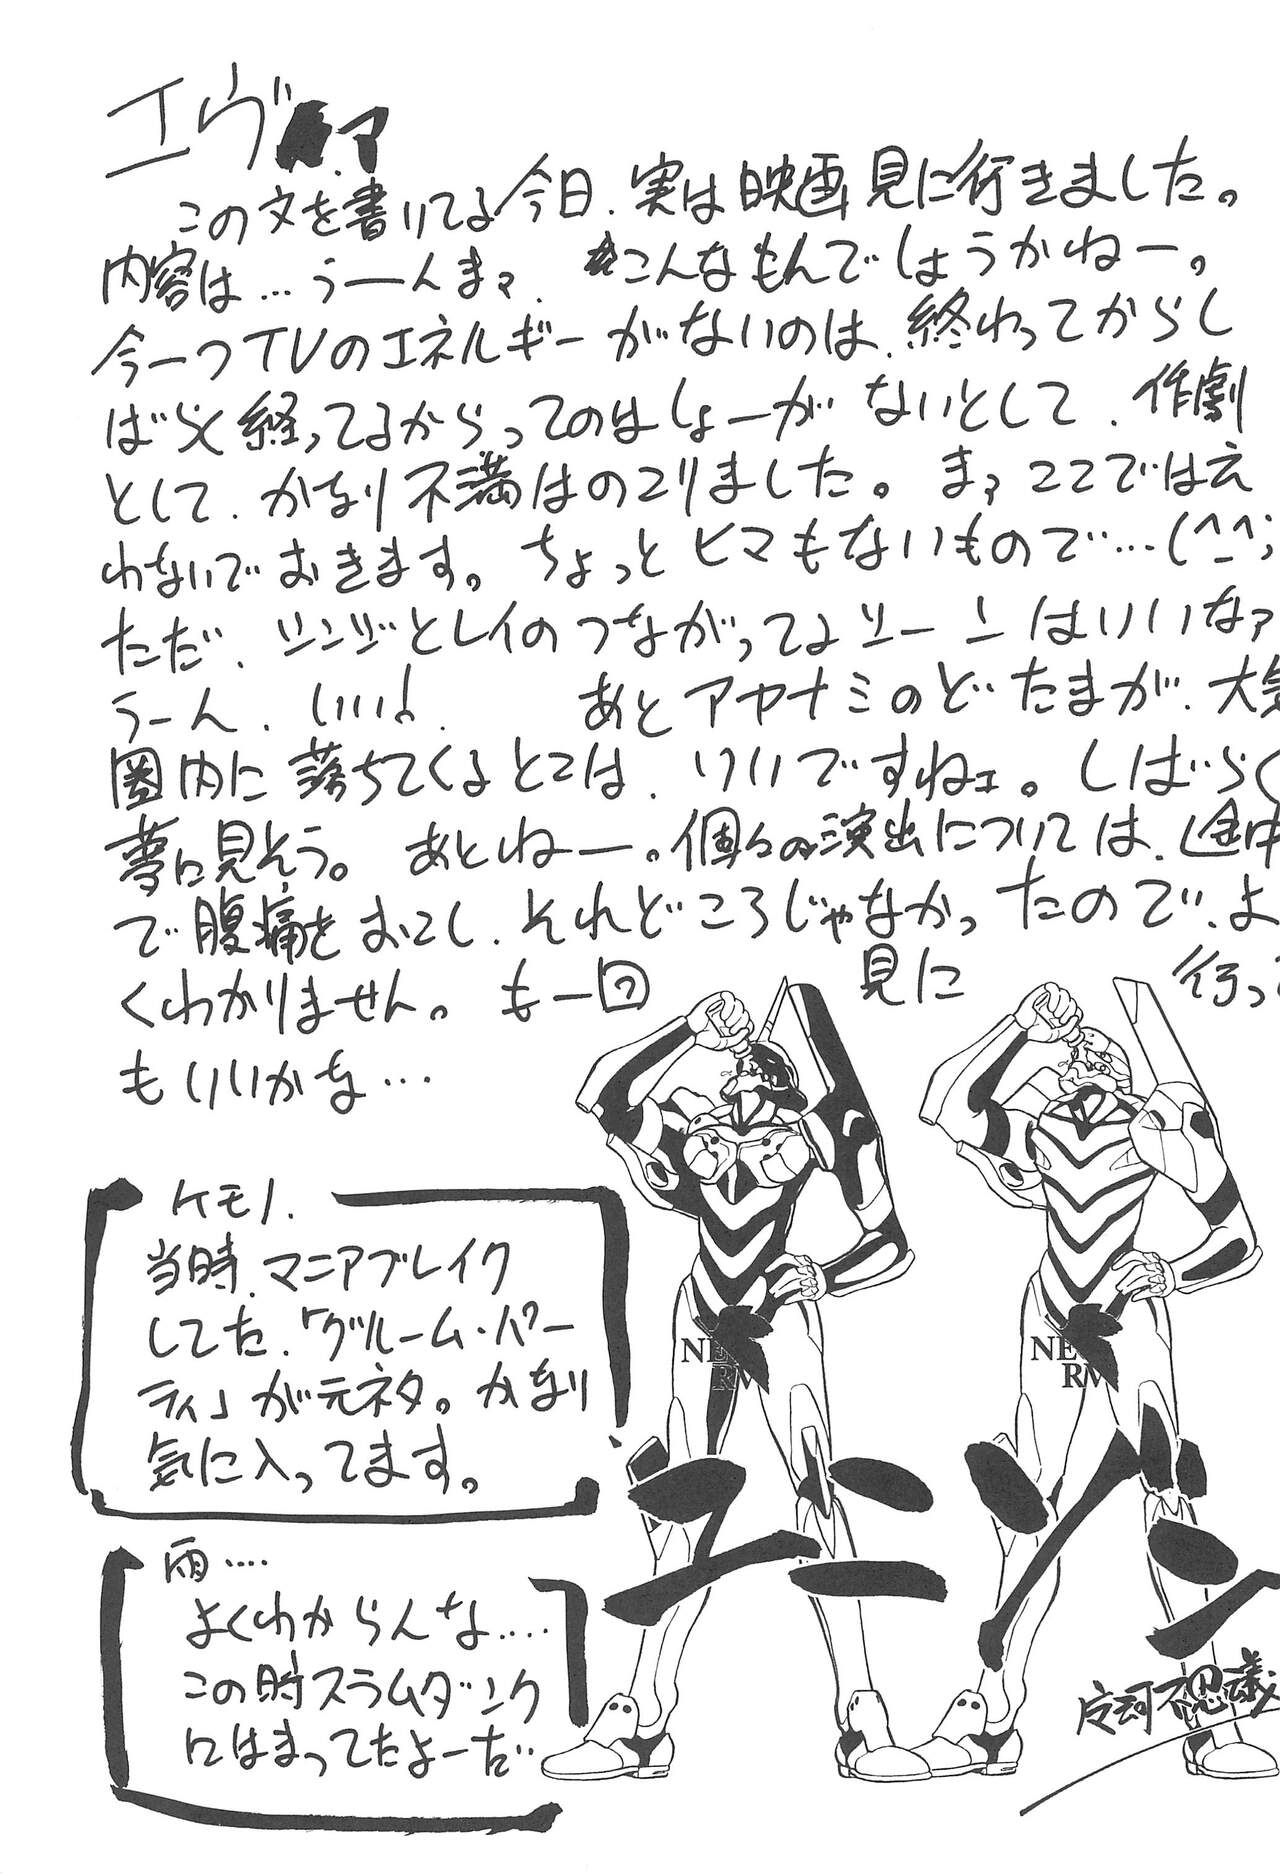 エヴァ
この文を書いてる今日、実は映画見に行きました。
内容は…うーんまァ、こんなもんでしょうかねー。
今一つTVのエネルギーがないのは、終わってからし
ばらく経ってるからってのはしょーがないとして、作劇
として、かなり不満はのこりました。まァココではえ
わないでおきます。ちょっとヒマもないもので…(^_^;
ただ、シンジとレイのつながってるシーンはいいなァ
うーん、いい!あとアヤナミのどたまが、大気
圏内に落ちてくるとこは、いいですねェ。しばらく
夢に見そう。あとねー。個々の演出については、途中
で腹痛をおこし、それどころじゃなかったので、よ
くわかりません。も一回見に行って
もいいかな…
ケモノ、
当時、マニアブレイク
してた、「グルーム・パー
ティ」が元ネタ。かなり
気に入ってます。
雨….
よくわからんな….
この時スラムダンク
にはまってたよーだ
NE
RV
NE
RV
河不思議